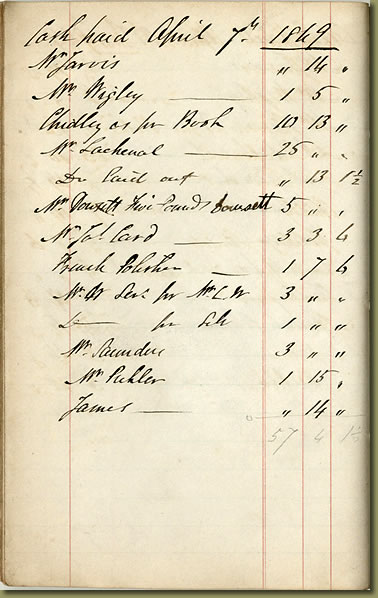 Cash paid April 7th 1849
Mr Jarvis " 14 "
Mr Wigley 1 5 "
Chidley as pr Book 10 13 "
Mr Lachenal 25 " "
Do laid out " 13 1½
Mr Dowsett Five Pounds Dowsett 5 " "
Mr Jos. Card 3 3 6
French Polisher 1 7 6
Mr W Ser. for Mr C W 3 " "
Do for 1 " "
Mr Saunders 3 " "
Mr Pichler 1 15 "
James " 14 "
57 4 1½